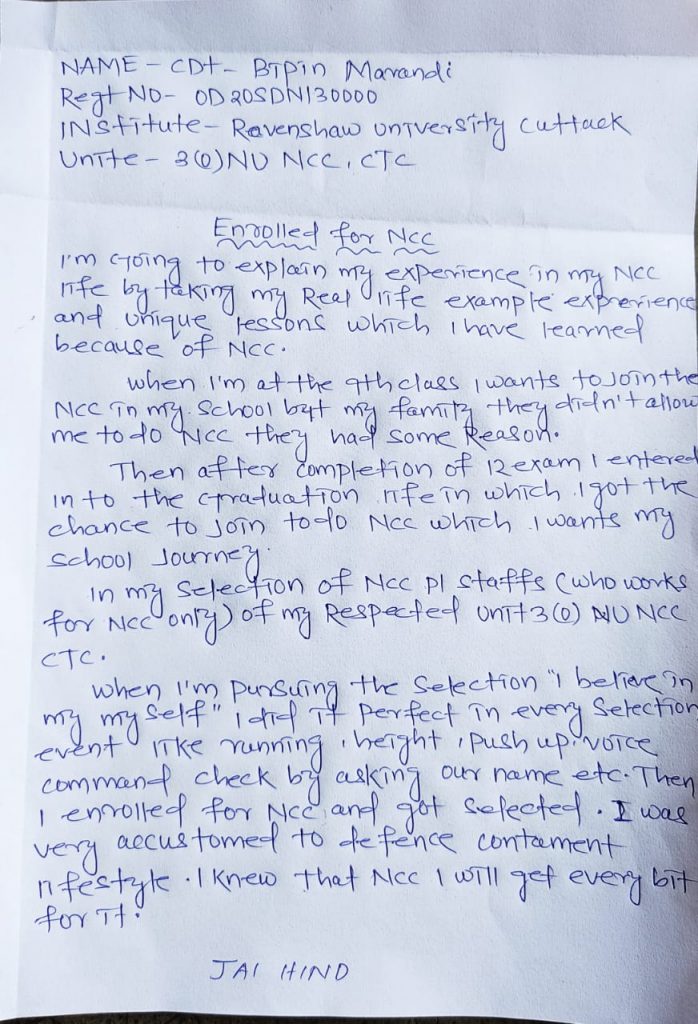 NAME - CDt - Bipin Marandi
Regt NO - OD20SDN130000
INStitute - Ravenshaw university cuttack
Unite - 3(O)NU NCC, CTC
Enrolled for NCC
I'm Going to explain my experience in my NCC
life by taking my Real life example experience
and unique lessons which I have learned
because of NCC.
when I'm at the 9th class I wants to Join the
NCC in my school but my family they didn't allow
me to do NCC they had some Reason.
Then after completion of 12 exam I entered
in to the Graduation life in which I got the
chance to Join to do NCC which I wants my
school Journey.
In my Selection of NCC PI staffs (who works
for NCC only) of my Respected unit 3(O) NU NCC
CTC.
when I'm pursuing the Selection "I believe in
my my self" I did it perfect in every Selection
event like running, height, push up, voice
command check by asking our name etc. Then
I enrolled for NCC and got selected. I was
very accustomed to defence contament
lifestyle. I knew that NCC I will get every bit
for it.
JAI HIND